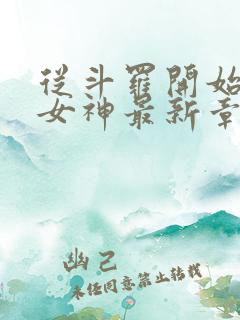 從斗羅開始
女神最新章
幽己
未经同意禁止转载